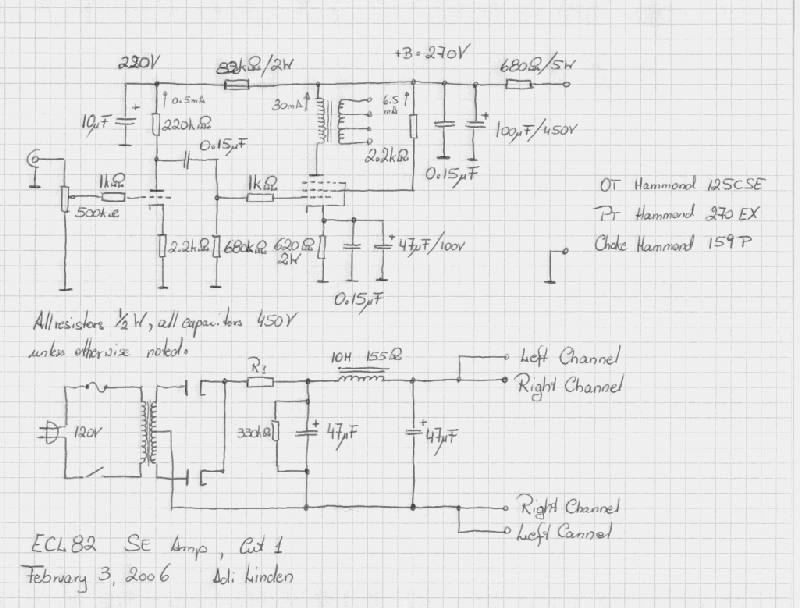 220V
82kΩ/2W
+B=270V
680Ω/5W
0.5mA
30mA
6.5 mA
10μF
220kΩ
0.15μF
100μF/450V
2.2kΩ
0.15μF
1kΩ
1kΩ
500kΩ
OT Hammond 125CSE
PT Hammond 270EX
Choke Hammond 159P
2.2kΩ
680kΩ
620Ω 2W
47μF/100V
0.15μF
All resistors ½W, all capacitors 450V
unless otherwise noted.
R1
10H 155Ω
Left Channel
Right Channel
120V
330kΩ
47μF
47μF
Right Channel
Left Cannel
ECL82 SE Amp, Cut 1
February 3, 2006 Adi Linden